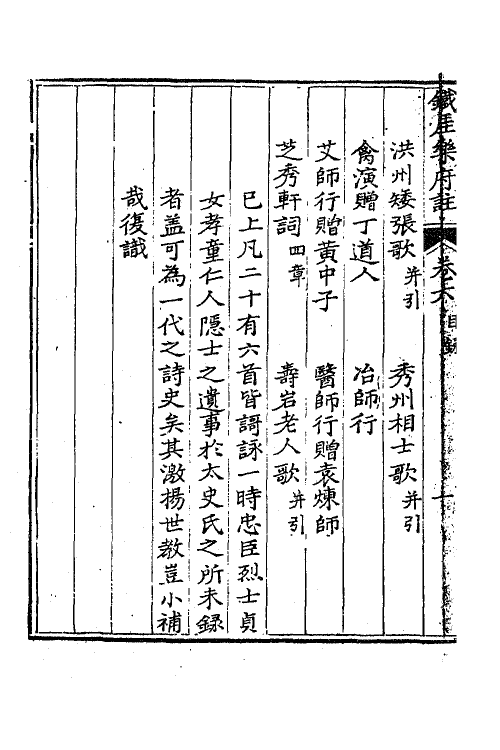 鐵崖樂府註 卷六 目錄 一
洪州矮張歌 并引 秀州相士歌 并引
禽演贈丁道人 冶師行
艾師行贈黃中子 醫師行贈袁煉師
芝秀軒詞 四章 壽岩老人歌 并引
已上凡二十有六首皆謌詠一時忠臣烈士貞
女孝童仁人隱士之遺事於太史氏之所未録
者盖可為一代之詩史矣其激揚世教豈小補
哉復識